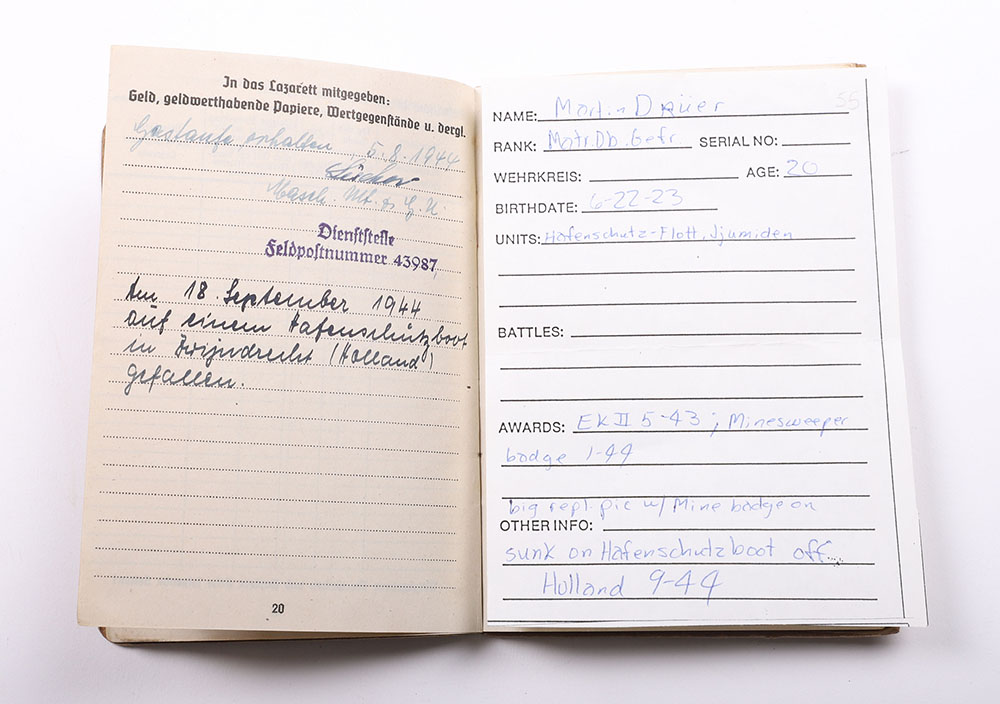 In das Lazarett mitgegeben:
Geld, geldwerthabende Papiere, Wertgegenstände u. dergl.
erhalten 5.8.1944
Masch. Mt.
Dienststelle
Feldpostnummer 43987
Am 18. September 1944
auf einem Hafenschutzboot
in Zwijndrecht (Holland)
gefallen.
20
55
NAME: Martin Dräuer
RANK: Matr.Ob.Gefr. SERIAL NO:
WEHRKREIS: AGE: 20
BIRTHDATE: 6-22-23
UNITS: Hafenschutz-Flott, Ijumiden
BATTLES:
AWARDS: EK II 5-43; Minesweeper
badge 1-44
big repl. pic w/ Mine badge on
OTHER INFO:
sunk on Hafenschutzboot off
Holland 9-44